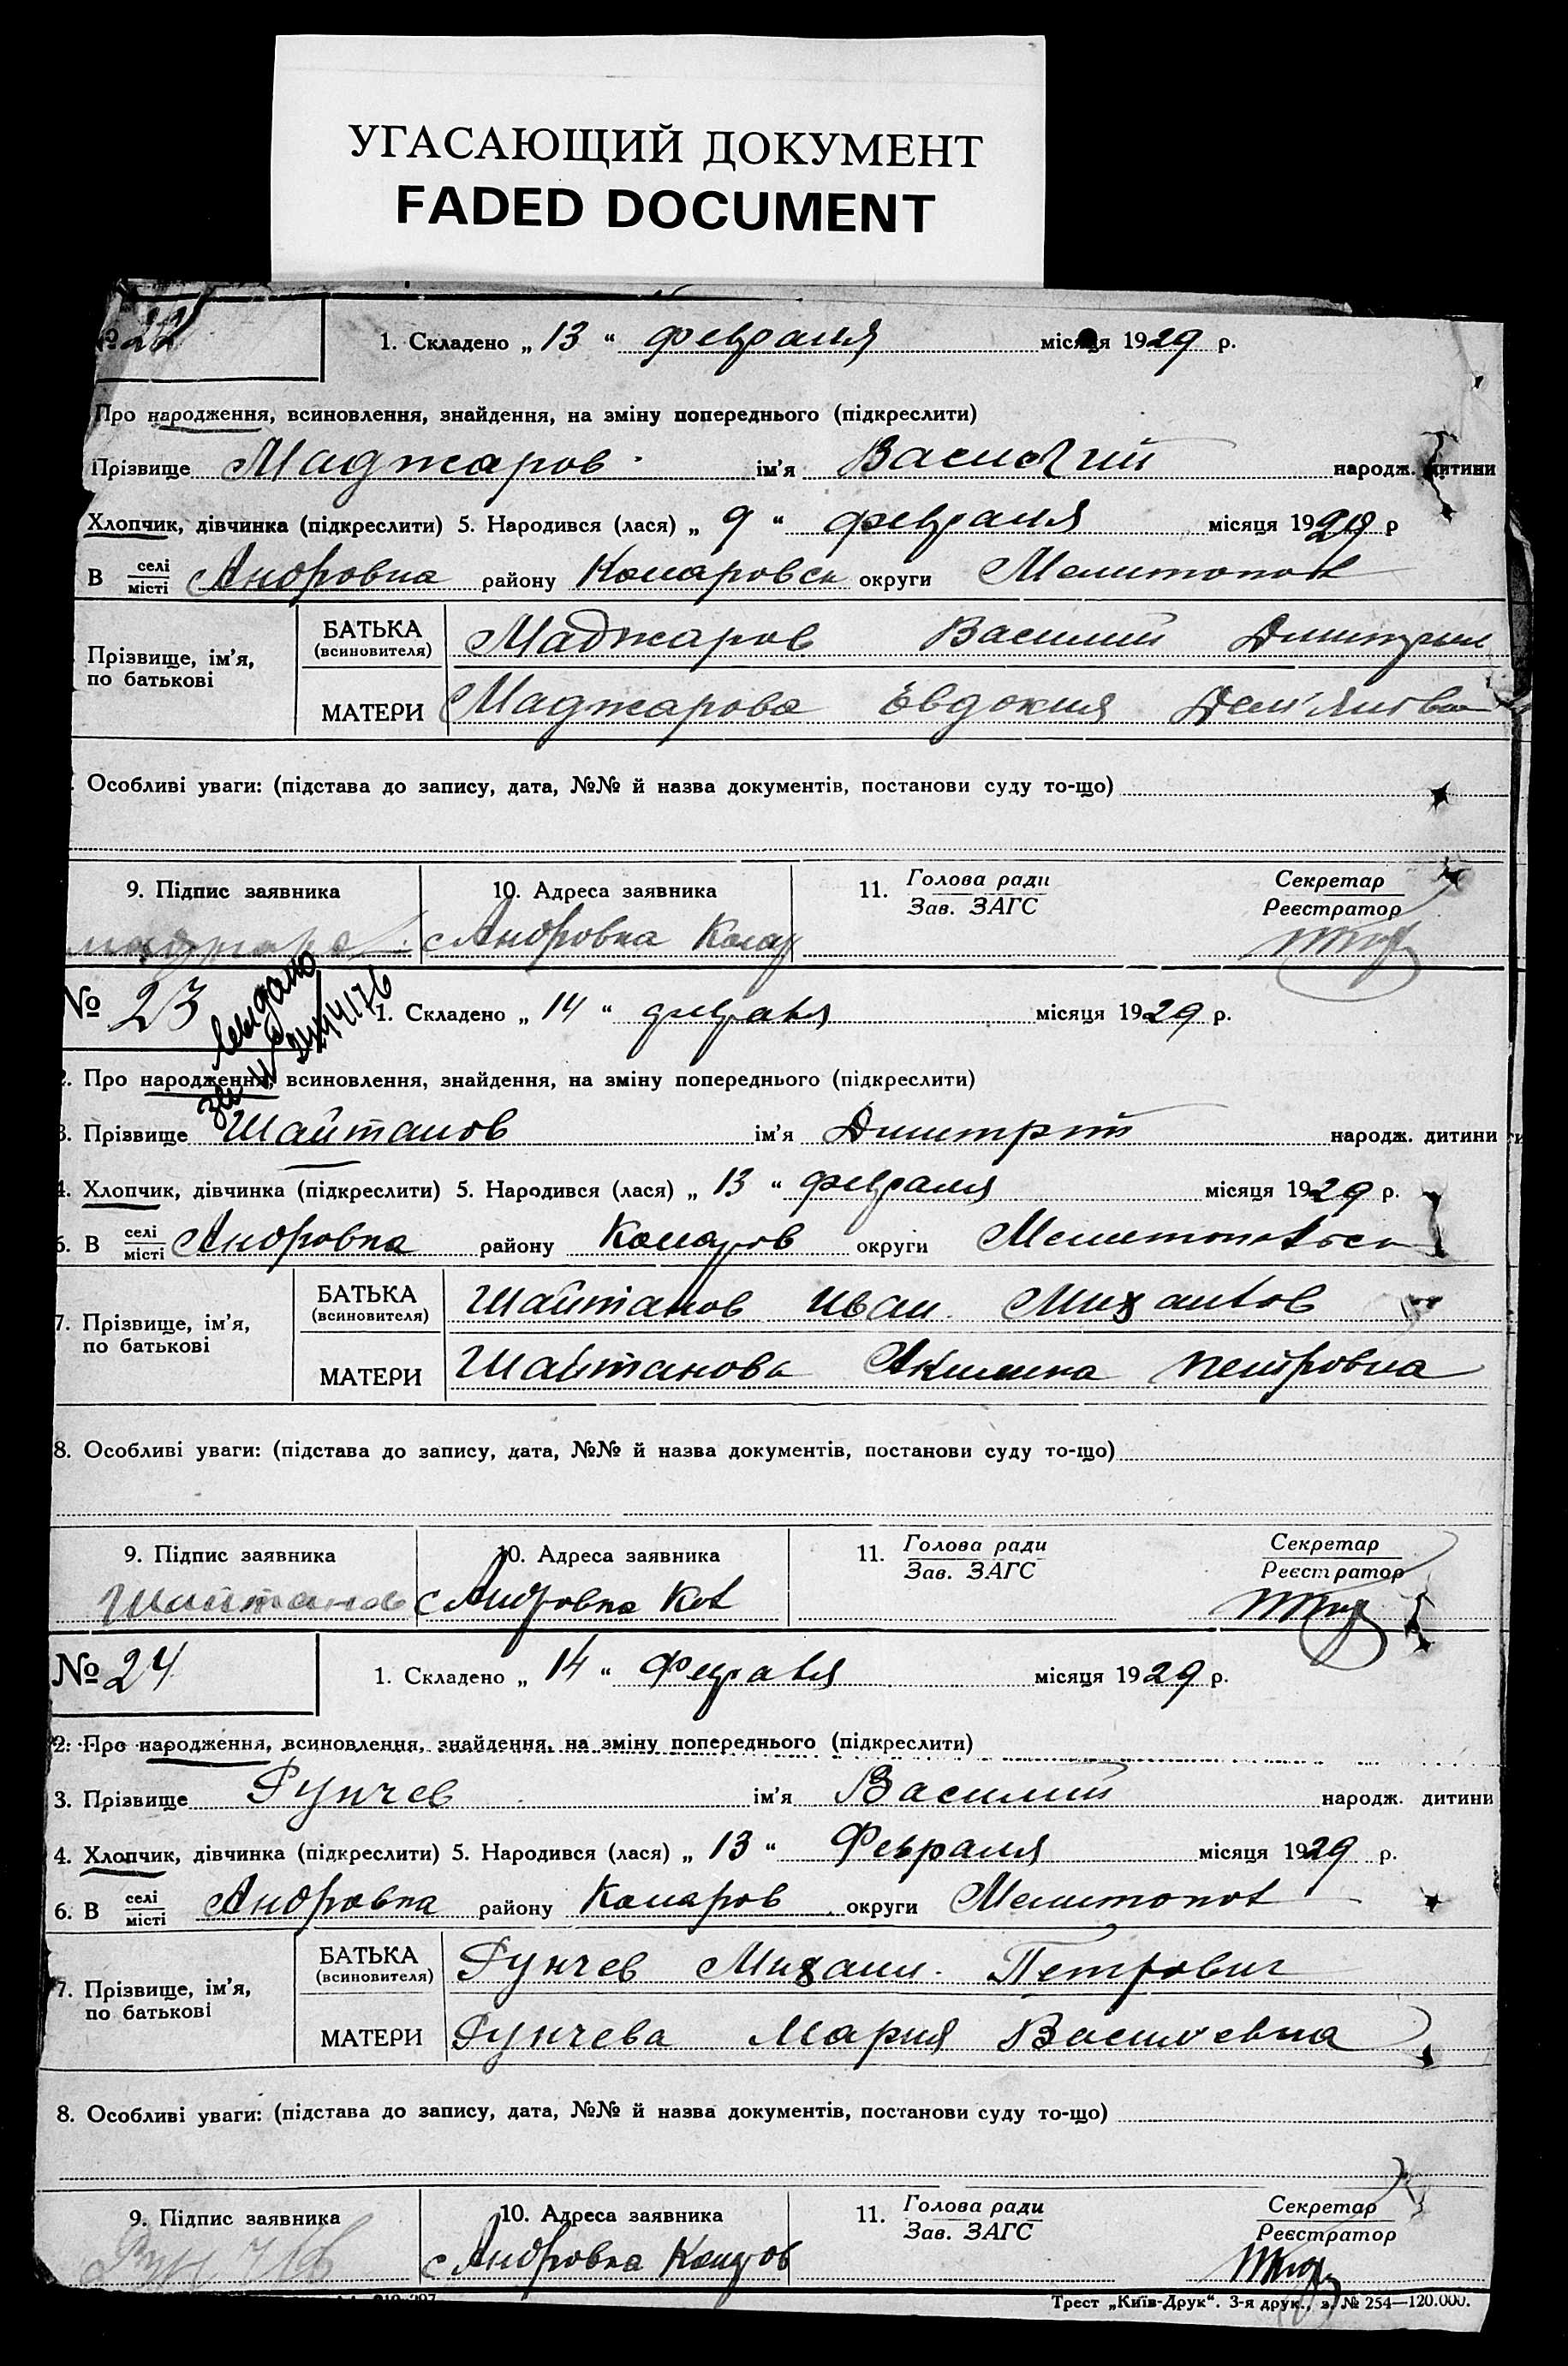 УГАСАЮЩИЙ ДОКУМЕНТ
FADED DOCUMENT
№ 22
1. Складено „ 13 “ февраля місяця 1929 р.
Про народження, всиновлення, знайдення, на зміну попереднього (підкреслити)
Прізвище Маджаров ім’я Василий народж. дитини
Хлопчик, дівчинка (підкреслити) 5. Народився (лася) „ 9 “ февраля місяця 1929 р
В селі/місті Андровка району Комаровск округи Мелитопол
Прізвище, ім’я, по батькові
БАТЬКА (всиновителя) Маджаров Василий Димитриев
МАТЕРИ Маджарова Евдокия Демʼяновна
Особливі уваги: (підстава до запису, дата, №№ й назва документів, постанови суду то-що)
9. Підпис заявника 10. Адреса заявника 11. Голова ради/Зав. ЗАГС Секретар/Реєстратор
с Андровка Комар
№ 23
1. Складено „ 14 “ февраля місяця 1929 р.
2. Про народження, всиновлення, знайдення, на зміну попереднього (підкреслити)
3. Прізвище Шайтанов ім’я Димитрий народж. дитини
4. Хлопчик, дівчинка (підкреслити) 5. Народився (лася) „ 13 “ февраля місяця 1929 р.
6. В селі/місті Андровка району Комаров округи Мелитопольск
7. Прізвище, ім’я, по батькові
БАТЬКА (всиновителя) Шайтанов Иван Михайлов
МАТЕРИ Шайтанова Акилина Петровна
8. Особливі уваги: (підстава до запису, дата, №№ й назва документів, постанови суду то-що)
9. Підпис заявника 10. Адреса заявника 11. Голова ради/Зав. ЗАГС Секретар/Реєстратор
Шайтанов с Андровка
№ 24
1. Складено „ 14 “ февраля місяця 1929 р.
2. Про народження, всиновлення, знайдення, на зміну попереднього (підкреслити)
3. Прізвище Рунчев ім’я Василий народж. дитини
4. Хлопчик, дівчинка (підкреслити) 5. Народився (лася) „ 13 “ Февраля місяця 1929 р.
6. В селі/місті Андровка району Комаров округи Мелитопол
7. Прізвище, ім’я, по батькові
БАТЬКА (всиновителя) Рунчев Михаил Петрович
МАТЕРИ Рунчева Мария Васильевна
8. Особливі уваги: (підстава до запису, дата, №№ й назва документів, постанови суду то-що)
9. Підпис заявника 10. Адреса заявника 11. Голова ради/Зав. ЗАГС Секретар/Реєстратор
Рунчев с Андровка Комаров
Трест „Київ-Друк“. 3-я друк., з. № 254—120.000.